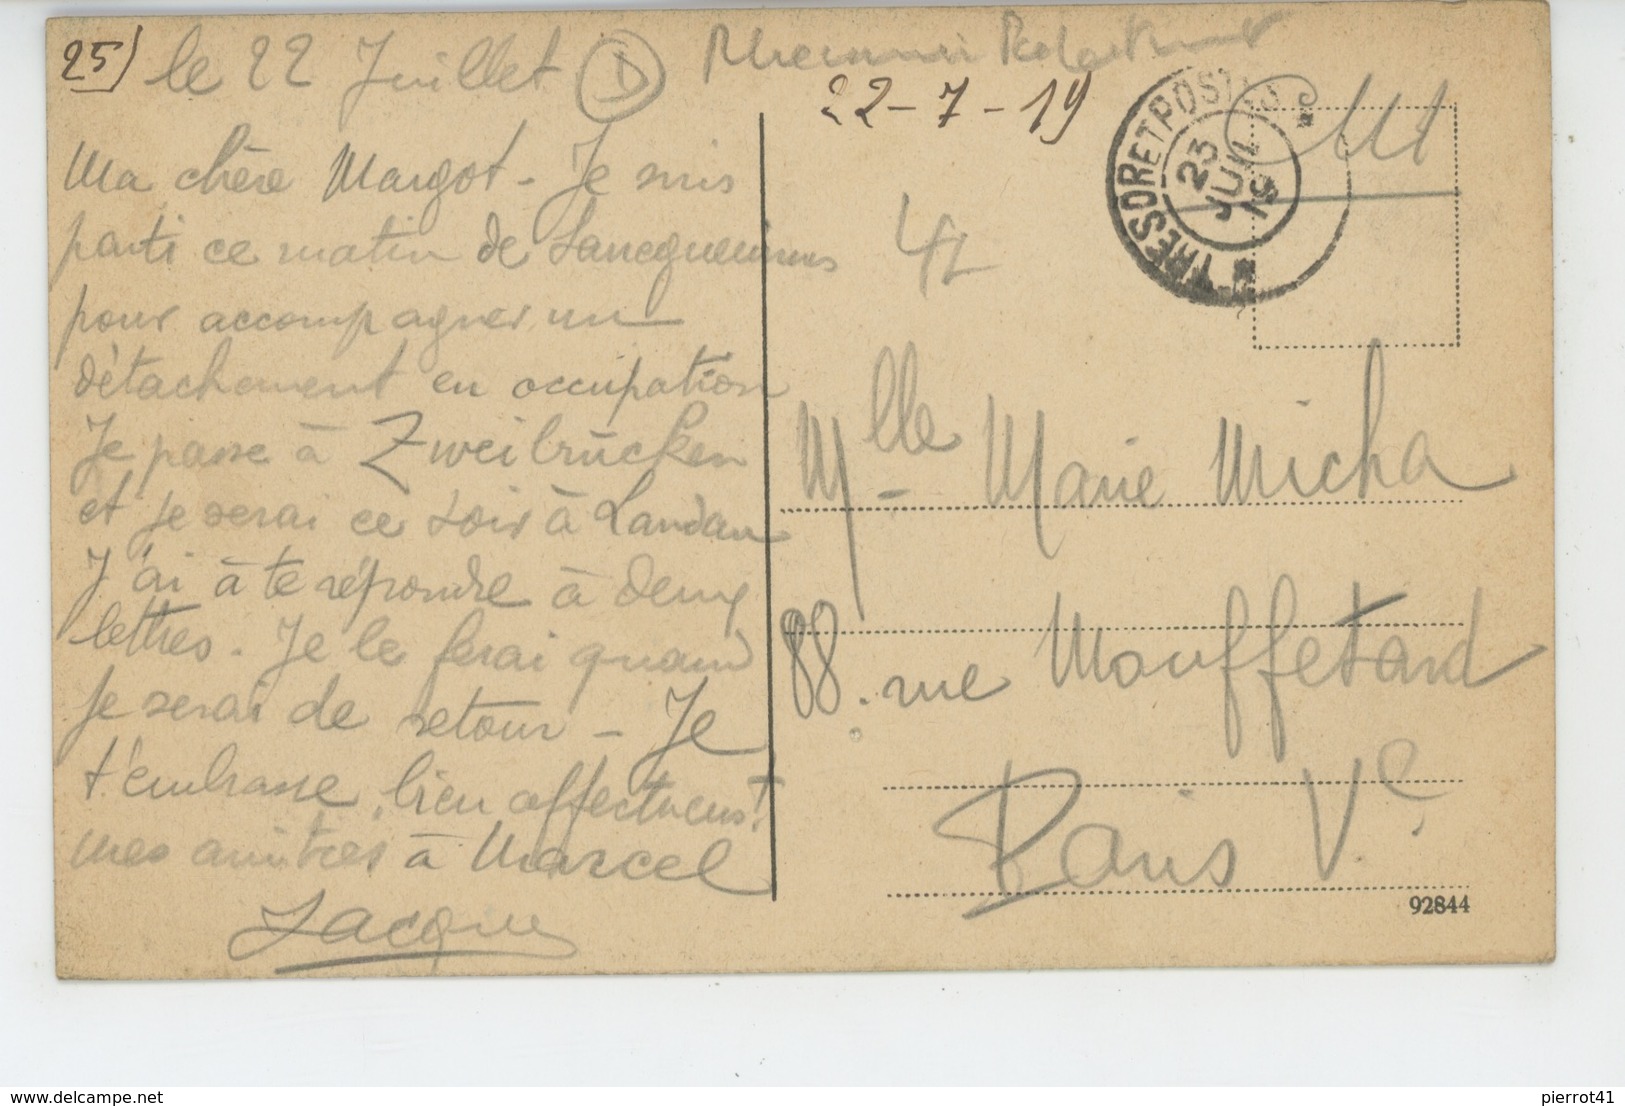 25) le 22 Juillet D
22-7-19
Ma chère Margot - Je suis
parti ce matin de
pour accompagner un
détachement en occupation
Je passe à Zweibrücken
et je serai ce soir à Landau
J'ai à te répondre à deux
lettres. Je le ferai quand
je serai de retour - Je
t'embrasse bien affectueust
mes amitiés à Marcel
Jacques
TRESOR ET POSTES
23
JUIL
19
Mlle Marie Micha
88. rue Mouffetard
Paris Ve
92844
pierrot41